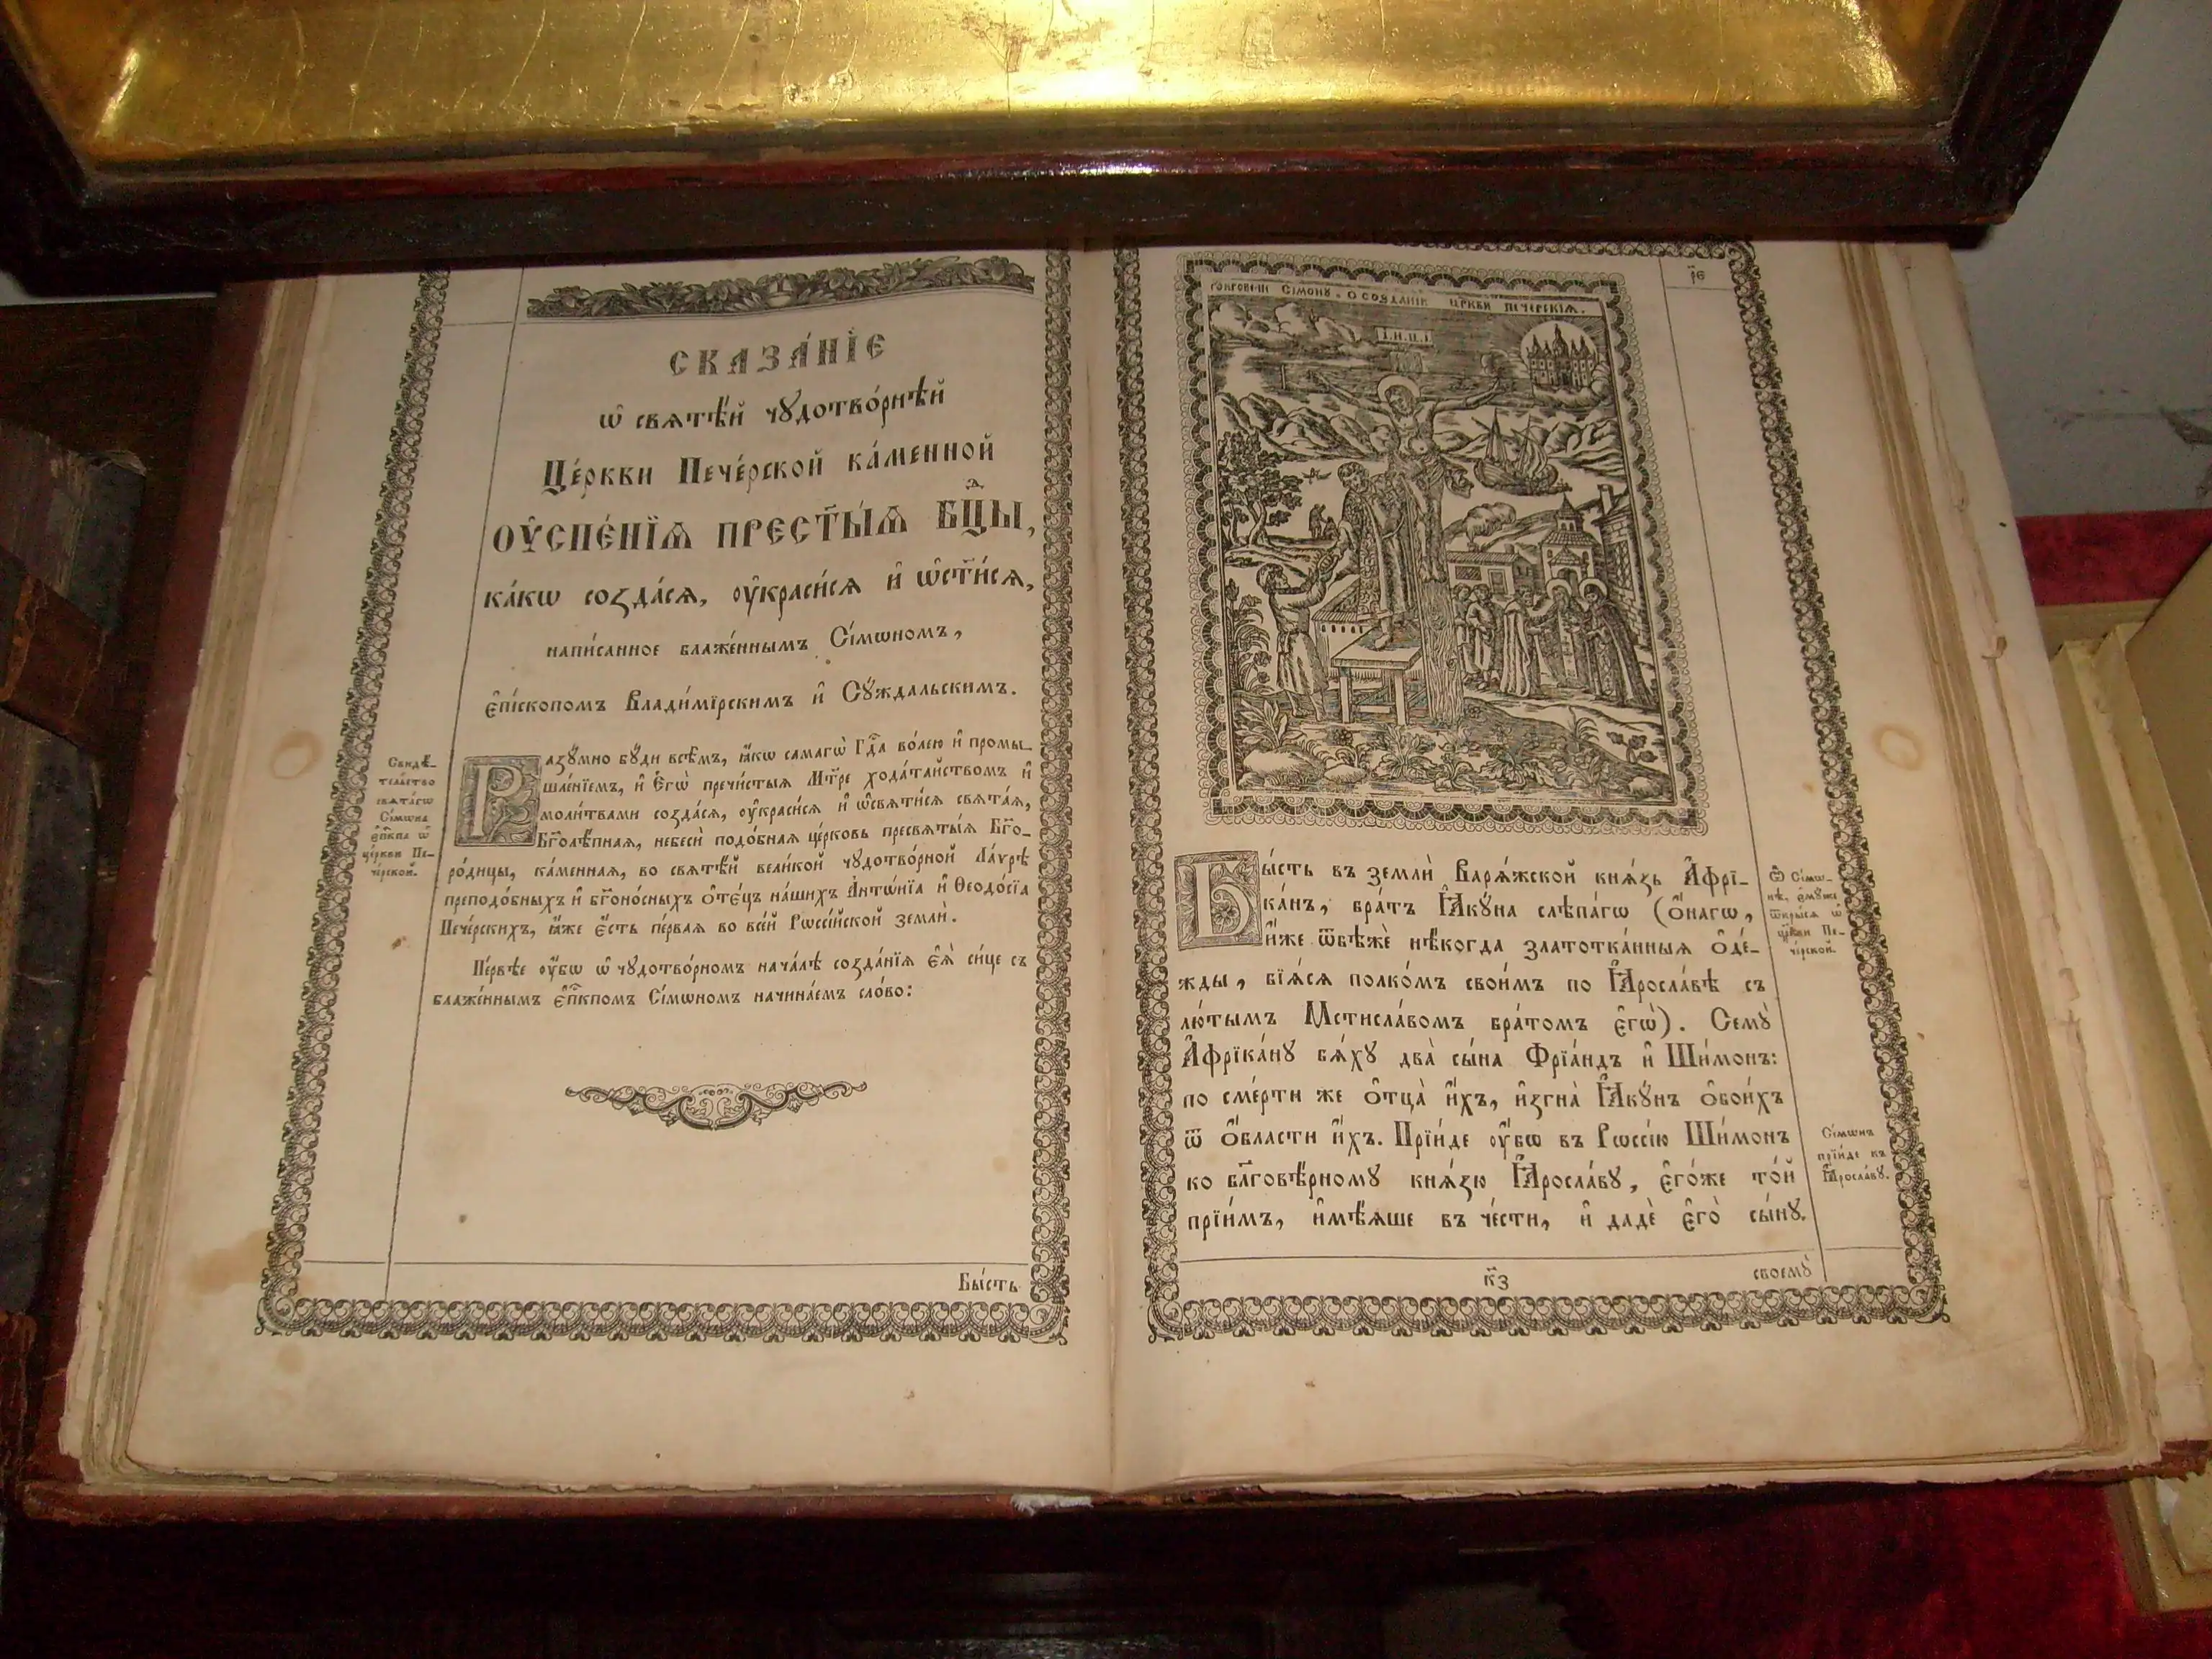 СКАЗА́НЇЕ
ѡ҆ свѧтѣ́й чꙋдотво́рнѣй
Це́ркви Пече́рской ка́менной
ОУ҆СПЕ́НЇѦ ПРЕСТ҃Ы́Ѧ БЦ҃Ы,
ка́кѡ созда́сѧ, оу҆краси́сѧ и҆ ѡ҆ст҃и́сѧ,
напи́санное блаже́ннымъ Сі́мѡномъ,
є҆пі́скопомъ Влади́мїрскимъ и҆ Сꙋ́ждальскимъ.
Свидѣ́-
тельство
свѧта́гѡ
Сі́мѡна
є҆пⷭ҇кпа ѡ҆
це́ркви Пе-
че́рской.
Разꙋ́мно бꙋ́ди всѣ̑мъ, ꙗ҆́кѡ самагѡ̀ Гдⷭ҇а во́лею и҆ промы-
шле́нїемъ, и҆ Є҆гѡ̀ пречи́стыѧ Мт҃ре хода́тайствомъ и҆
моли́твами созда́сѧ, оу҆краси́сѧ и҆ ѡ҆свѧти́сѧ свѧта́ѧ,
Бг҃олѣ́пнаѧ, небесѝ подо́бнаѧ це́рковь пресвѧты́ѧ Бг҃о-
ро́дицы, ка́меннаѧ, во свѧтѣ́й вели́кой чꙋдотво́рной Ла́ѵрѣ
преподо́бныхъ и҆ бг҃оно́сныхъ ѻ҆те́цъ на́шихъ А҆нтѡ́нїа и҆ Ѳеодо́сїа
Пече́рскихъ, ꙗ҆́же є҆́сть пе́рваѧ во все́й Рѡссі́йской землѝ.
Пе́рвѣе оу҆́бѡ ѡ҆ чꙋдотво́рномъ нача́лѣ созда́нїѧ є҆ѧ̀ си́це съ
блаже́ннымъ є҆пⷭ҇кпомъ Сі́мѡномъ начина́емъ сло́во:
Бы́сть
І.Н.Ц.І
Бы́сть въ землѝ Варѧ́жской кнѧ́зь А҆фрї-
ка́нъ, бра́тъ Ꙗ҆кꙋ́на слѣпа́гѡ (ѻ҆́нагѡ,
и҆́же ѿбѣжѐ нѣ́когда златотка́нныѧ ѻ҆де́-
жды, бїѧ́сѧ полко́мъ свои́мъ по Ꙗ҆росла́вѣ съ
лю́тымъ Мстисла́вомъ бра́томъ є҆гѡ̀). Семꙋ̀
А҆фрїка́нꙋ бѧ́хꙋ два̀ сы́на Фрїа́ндъ и҆ Ши́монъ:
по сме́рти же ѻ҆тца̀ и҆́хъ, и҆згна̀ Ꙗ҆кꙋ́нъ ѻ҆бои́хъ
ѿ ѻ҆́бласти и҆́хъ. Прїи́де оу҆́бѡ въ Рѡссі́ю Ши́монъ
ко бл҃говѣ́рномꙋ кнѧ́зю Ꙗ҆росла́вꙋ, є҆го́же то́й
прїи́мъ, и҆мѣ́ѧше въ че́сти, и҆ дадѐ є҆го̀ сы́нꙋ
Ѽ Сі́мѡ-
нѣ, є҆мꙋ́же
ѿкры́сѧ ѡ҆
цр҃кви Пе-
че́рской.
Сі́мѡнъ
прїи́де къ
Ꙗ҆росла́вꙋ.
к҃з
своемꙋ̀